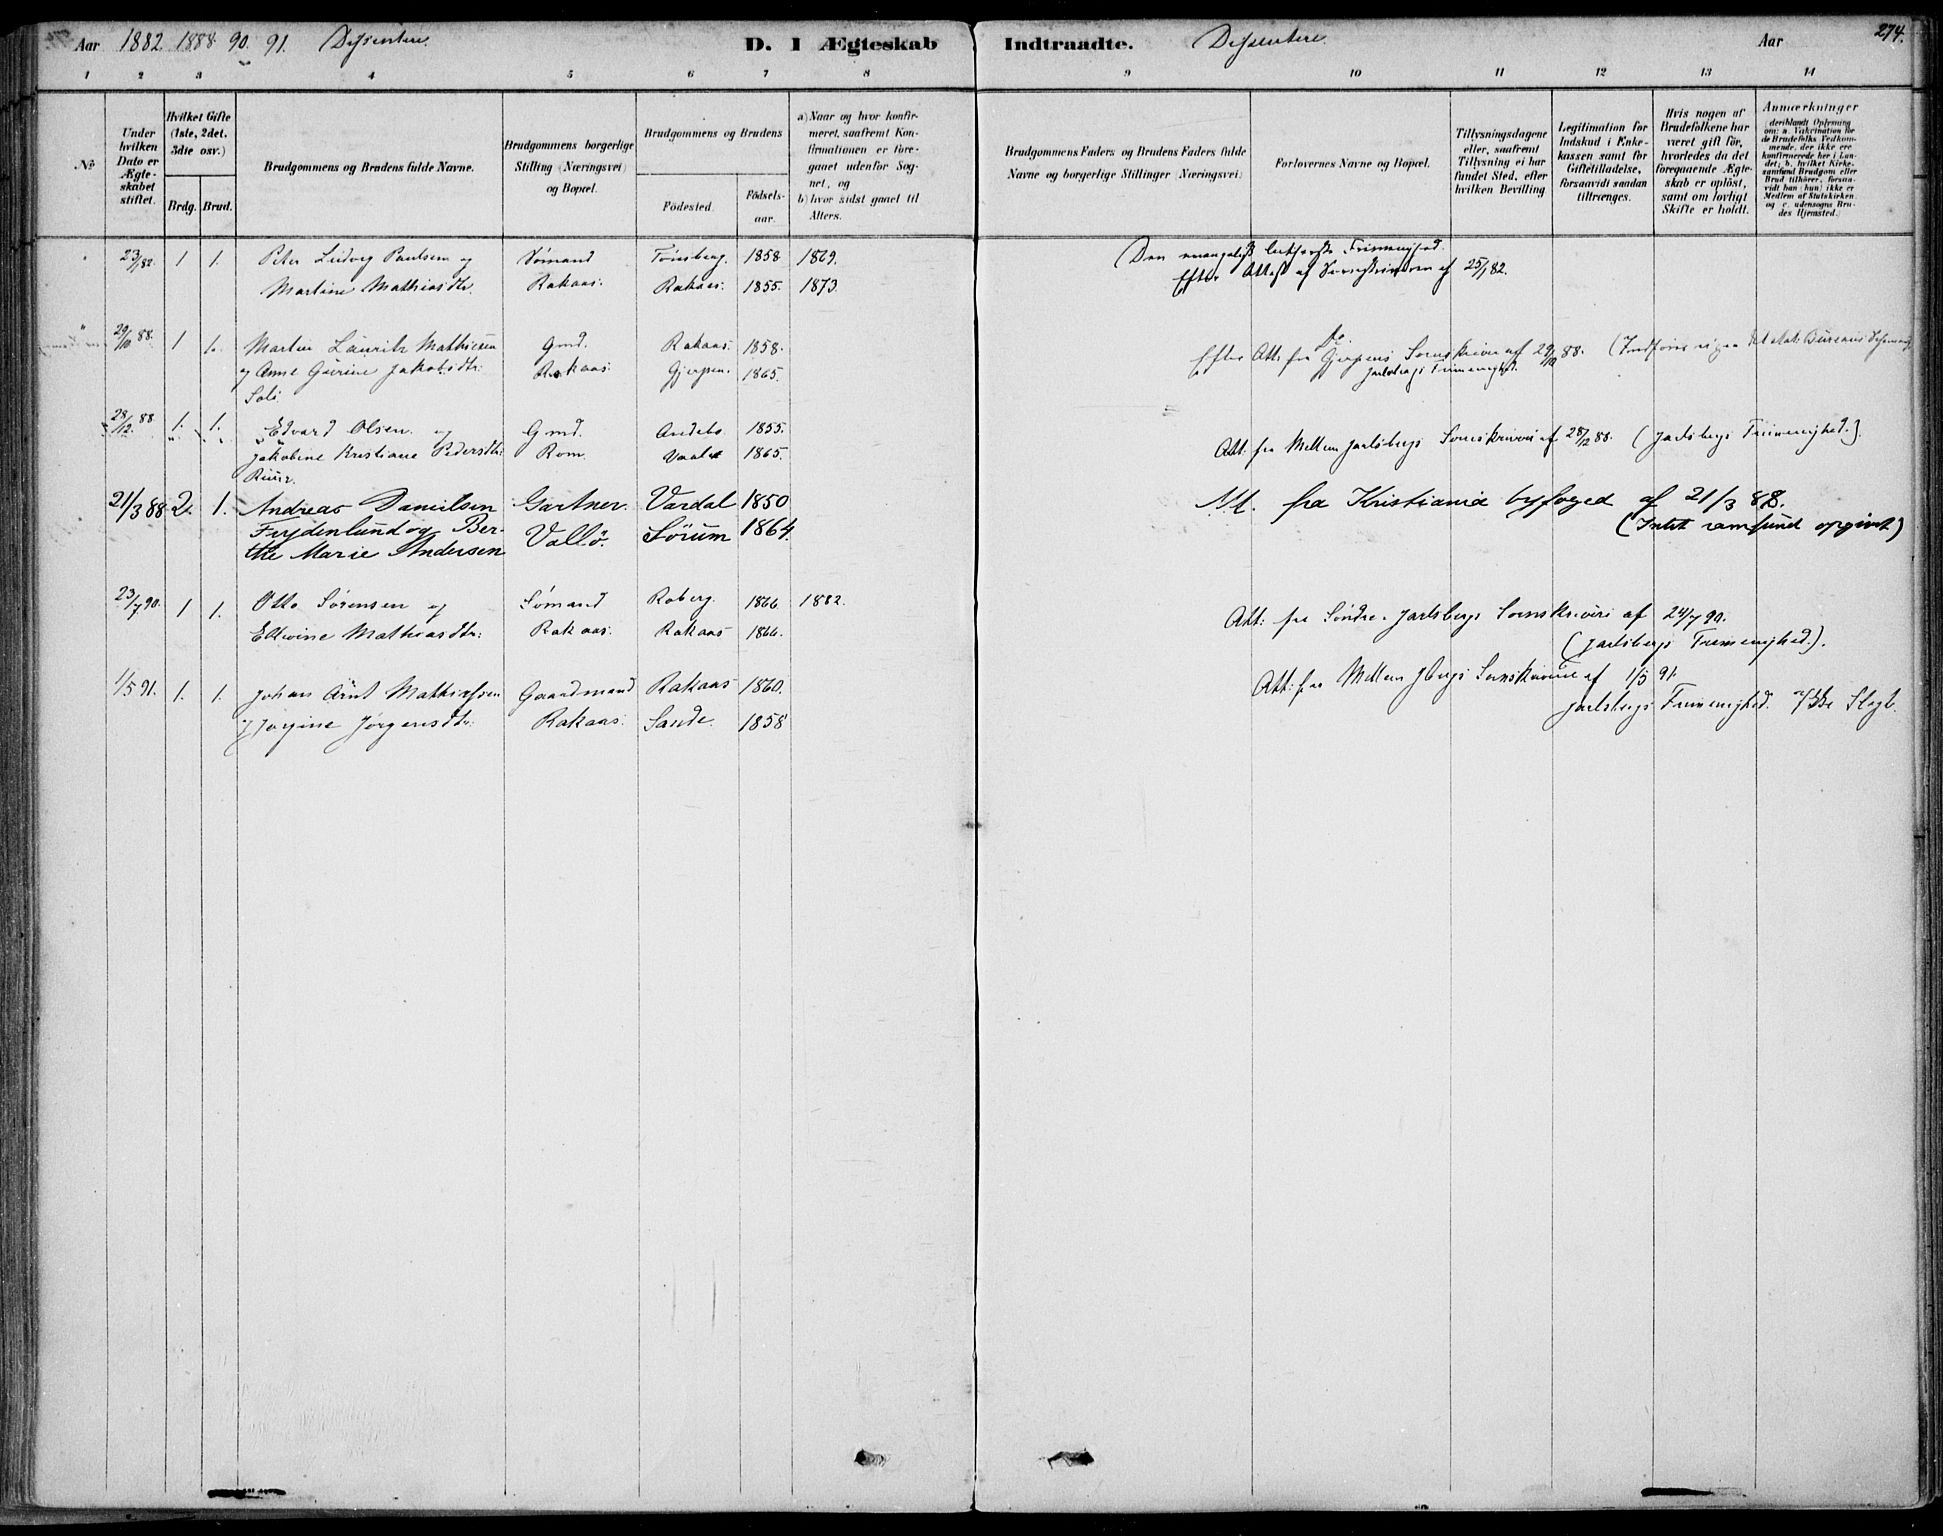 Aar 1882 1888 90. 91. Dissentere. D. I Ægteskab Indtraadte. Dissentere. Aar 274.
1 2 3 4 5 6 7 8 9 10 11 12 13 14
No
Under hvilken Dato er Ægteskabet stiftet.
Hvilket Gifte (1ste, 2det, 3dte osv.)
Brdg. Brud.
Brudgommens og Brudens fulde Navne.
Brudgommens borgerlige Stilling (Næringsvei) og Bopæl.
Brudgommens og Brudens
Födested. Födselsaar.
a) Naar og hvor konfirmeret, saafremt Konfirmationen er foregaaet udenfor Sognet, og
b) hvor sidst gaaet til Alters.
Brudgommens Faders og Brudens Faders fulde Navne og borgerlige Stillinger (Næringsvei)
Forlovernes Navne og Bopæl.
Tillysningsdagene eller, saafremt Tillysning ei har fundet Sted, efter hvilken Bevilling
Legitimation for Indskud i Enkekassen samt for Giftetilladelse, forsaavidt saadan tiltrænges.
Hvis nogen af Brudefolkene har været gift för, hvorledes da det foregaaende Ægteskab er oplöst, samt om lovligt Skifte er holdt.
Anmærkninger (deriblandt Oplysning om: a. Vakcination for de Brudefolks Vedkommende, der ikke ere konfirmerede her i Landet; b. hvilket Kirkesamfund Brudgom eller Brud tilhörer, forsaavidt han (hun) ikke er Medlem af Statskirken, og c. udensogns Brudes Hjemsted.)
23/1 82. 1 1. Peter Ludvig Paulsen og Sömand Tönsberg. 1858 1869. Den evangelisk lutherske Frimenighed.
Martine Mathiasdtr. Rakaas. Rakaas. 1855. 1873. Efter Attest af Sorenskriveren af 25/1 82.
29/10 88. 1 1. Martin Lauritz Mathisen Gmd. Rakaas. 1858. Efter Att. fra Gjerpens Sorenskriveri af 29/10 88.
og Anne Gurine Jakobsdtr: Rakaas. Gjerpen. 1865. Jarlsbergs Frimenighed.
Soli.
28/12 88 1. 1. Edvard Olsen og Gmd. Andebo 1855. Att. fra Mellem Jarlsbergs Sorenskriveri af 28/12 88. (Jarlsbergs Frimenighed.)
Jakobine Kristiane Pedersdtr: Rom. Vaale 1865.
21/3 88 2. 1. Andreas Danielsen Gartner. Vardal 1850 Att. fra Kristiania byfoged af 21/3 88.
Frydenlund og Ber- Vallö. Sörum 1864. (Intet samfund opgivet)
the Marie Andersen
23/7 90. 1 1. Otto Sörensen og Sömand Roberg. 1866. 1882. Att: fra Söndre Jarlsbergs Sorenskriveri af 24/7 90.
Eltvine Mathiasdtr: Rakaas. Rakaas 1866. (Jarlsbergs Frimenighed.).
1/5 91. 1. 1. Johan Arnt Mathiassen Gaardmand Rakaas 1860. Att: fra Mellem Jbergs Sorenskriveri af 1/5 91.
og Jörgine Jörgensdtr: Rakaas. Sande. 1858 Jarlsbergs Frimenighed.